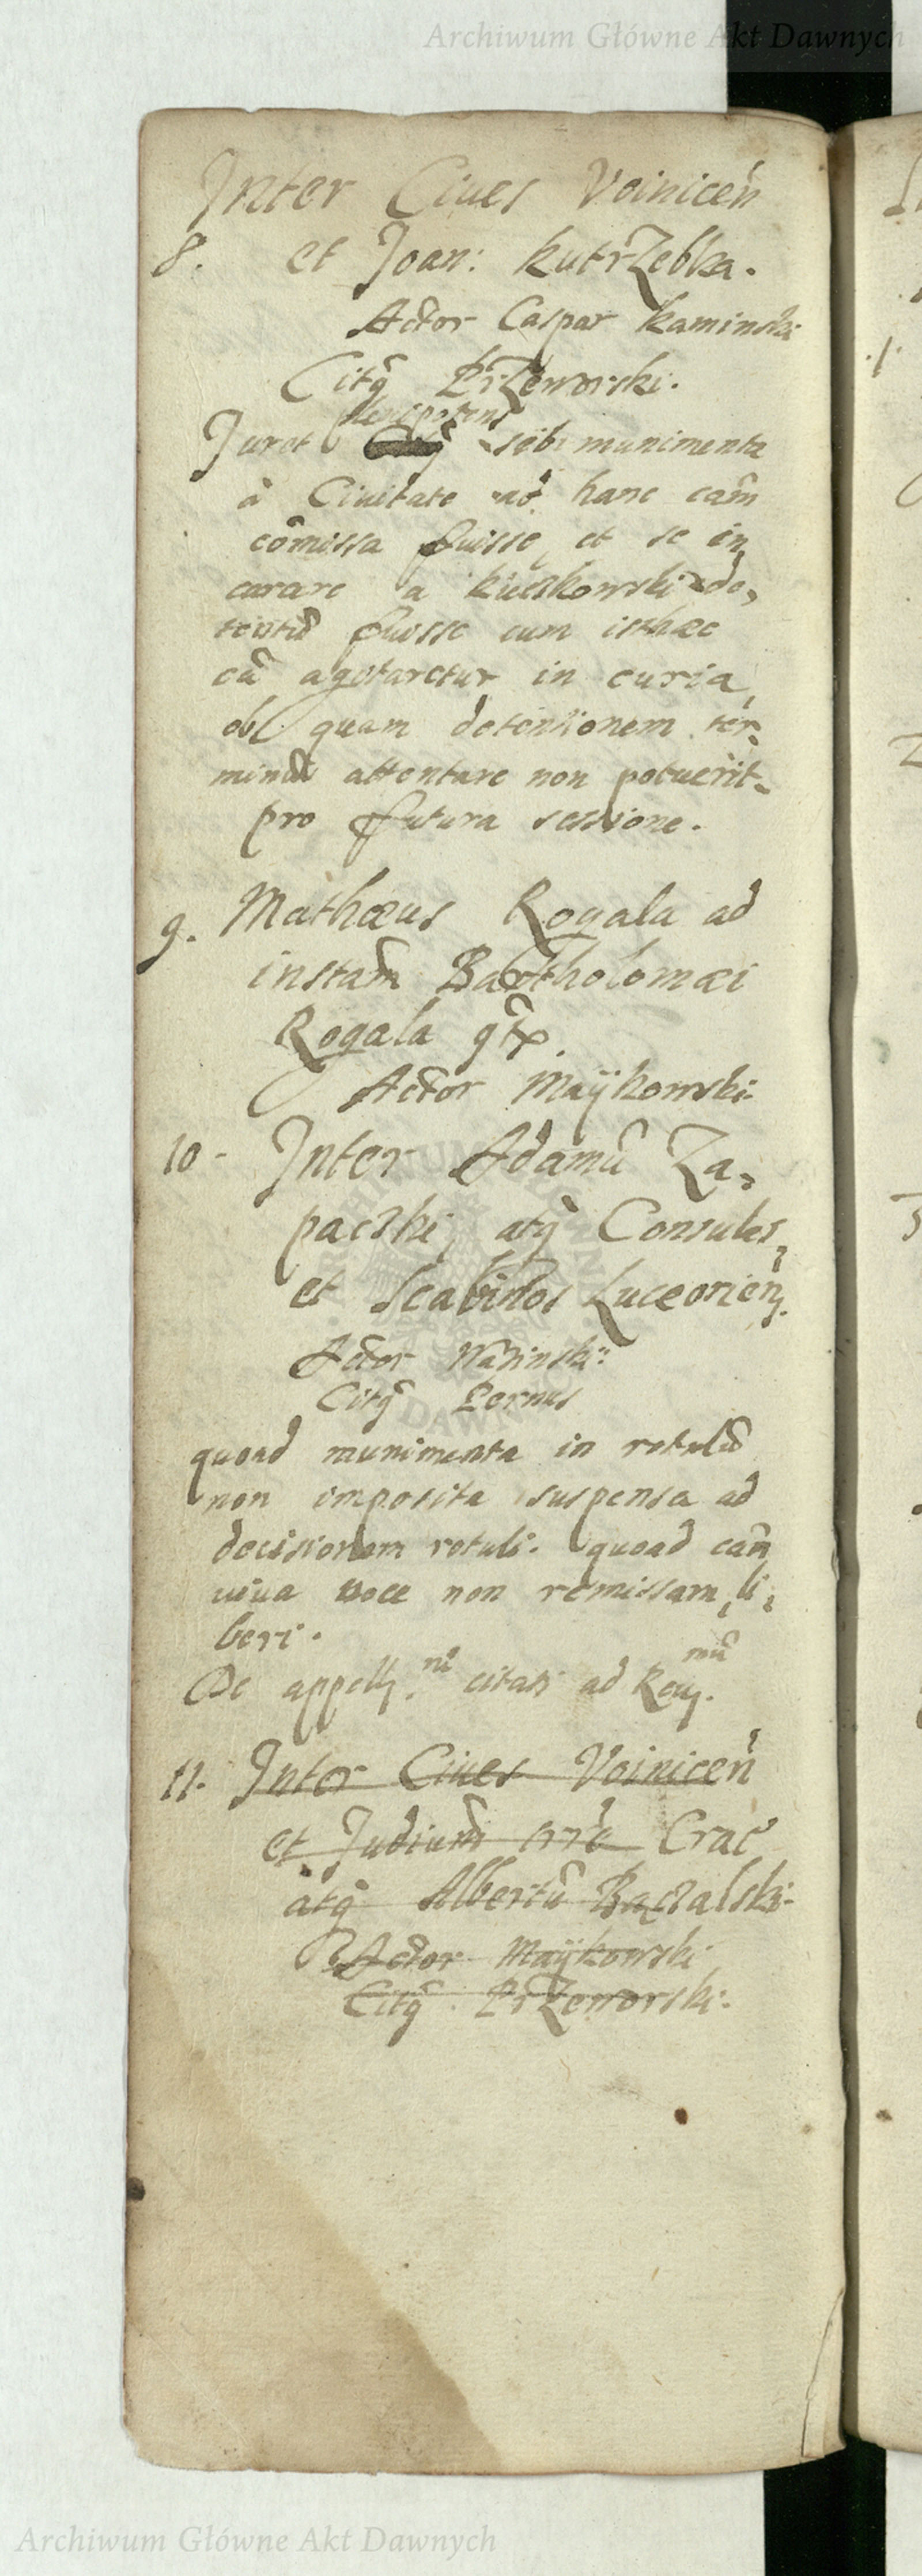 Archiwum Główne Akt Dawnych
Inter Ciues Voinicen̄
8. et Joan: KutrZebka.
Actor Caspar Kaminski
Citq̃ PrZeworski.
Juret sibi munimenta
à Ciuitate ad hanc cam̃
com̃issa fuisse, et se in
carcere a Kuczkowski de,
tentũ fuisse cum isthæc
cã agetaretur in curia,
ob quam detentionem ter,
minũ attentare non potuerit.
pro futura sessione.
9. Mathæus Rogala ad
instam̃ Bartholomæi
Rogala
Actor Maÿkowski.
10 - Inter Adamũ Za,
paczki, atq̃ Consules,
et Scabinos Luceorien̄.
Actor
Citq̃ Pernus
quoad munimenta in rotulũ
non imposita suspensa ad
decisionem rotuli. quoad cam̃
uiua uoce non remissam, li,
beri.
De citati ad
11. Inter Ciues Voinicen̄
et Judicium̃ Crac̃
atq̃ Albertũ Bączalski.
Actor Maÿkowski
Citq̃ PrZeworski.
Archiwum Główne Akt Dawnych